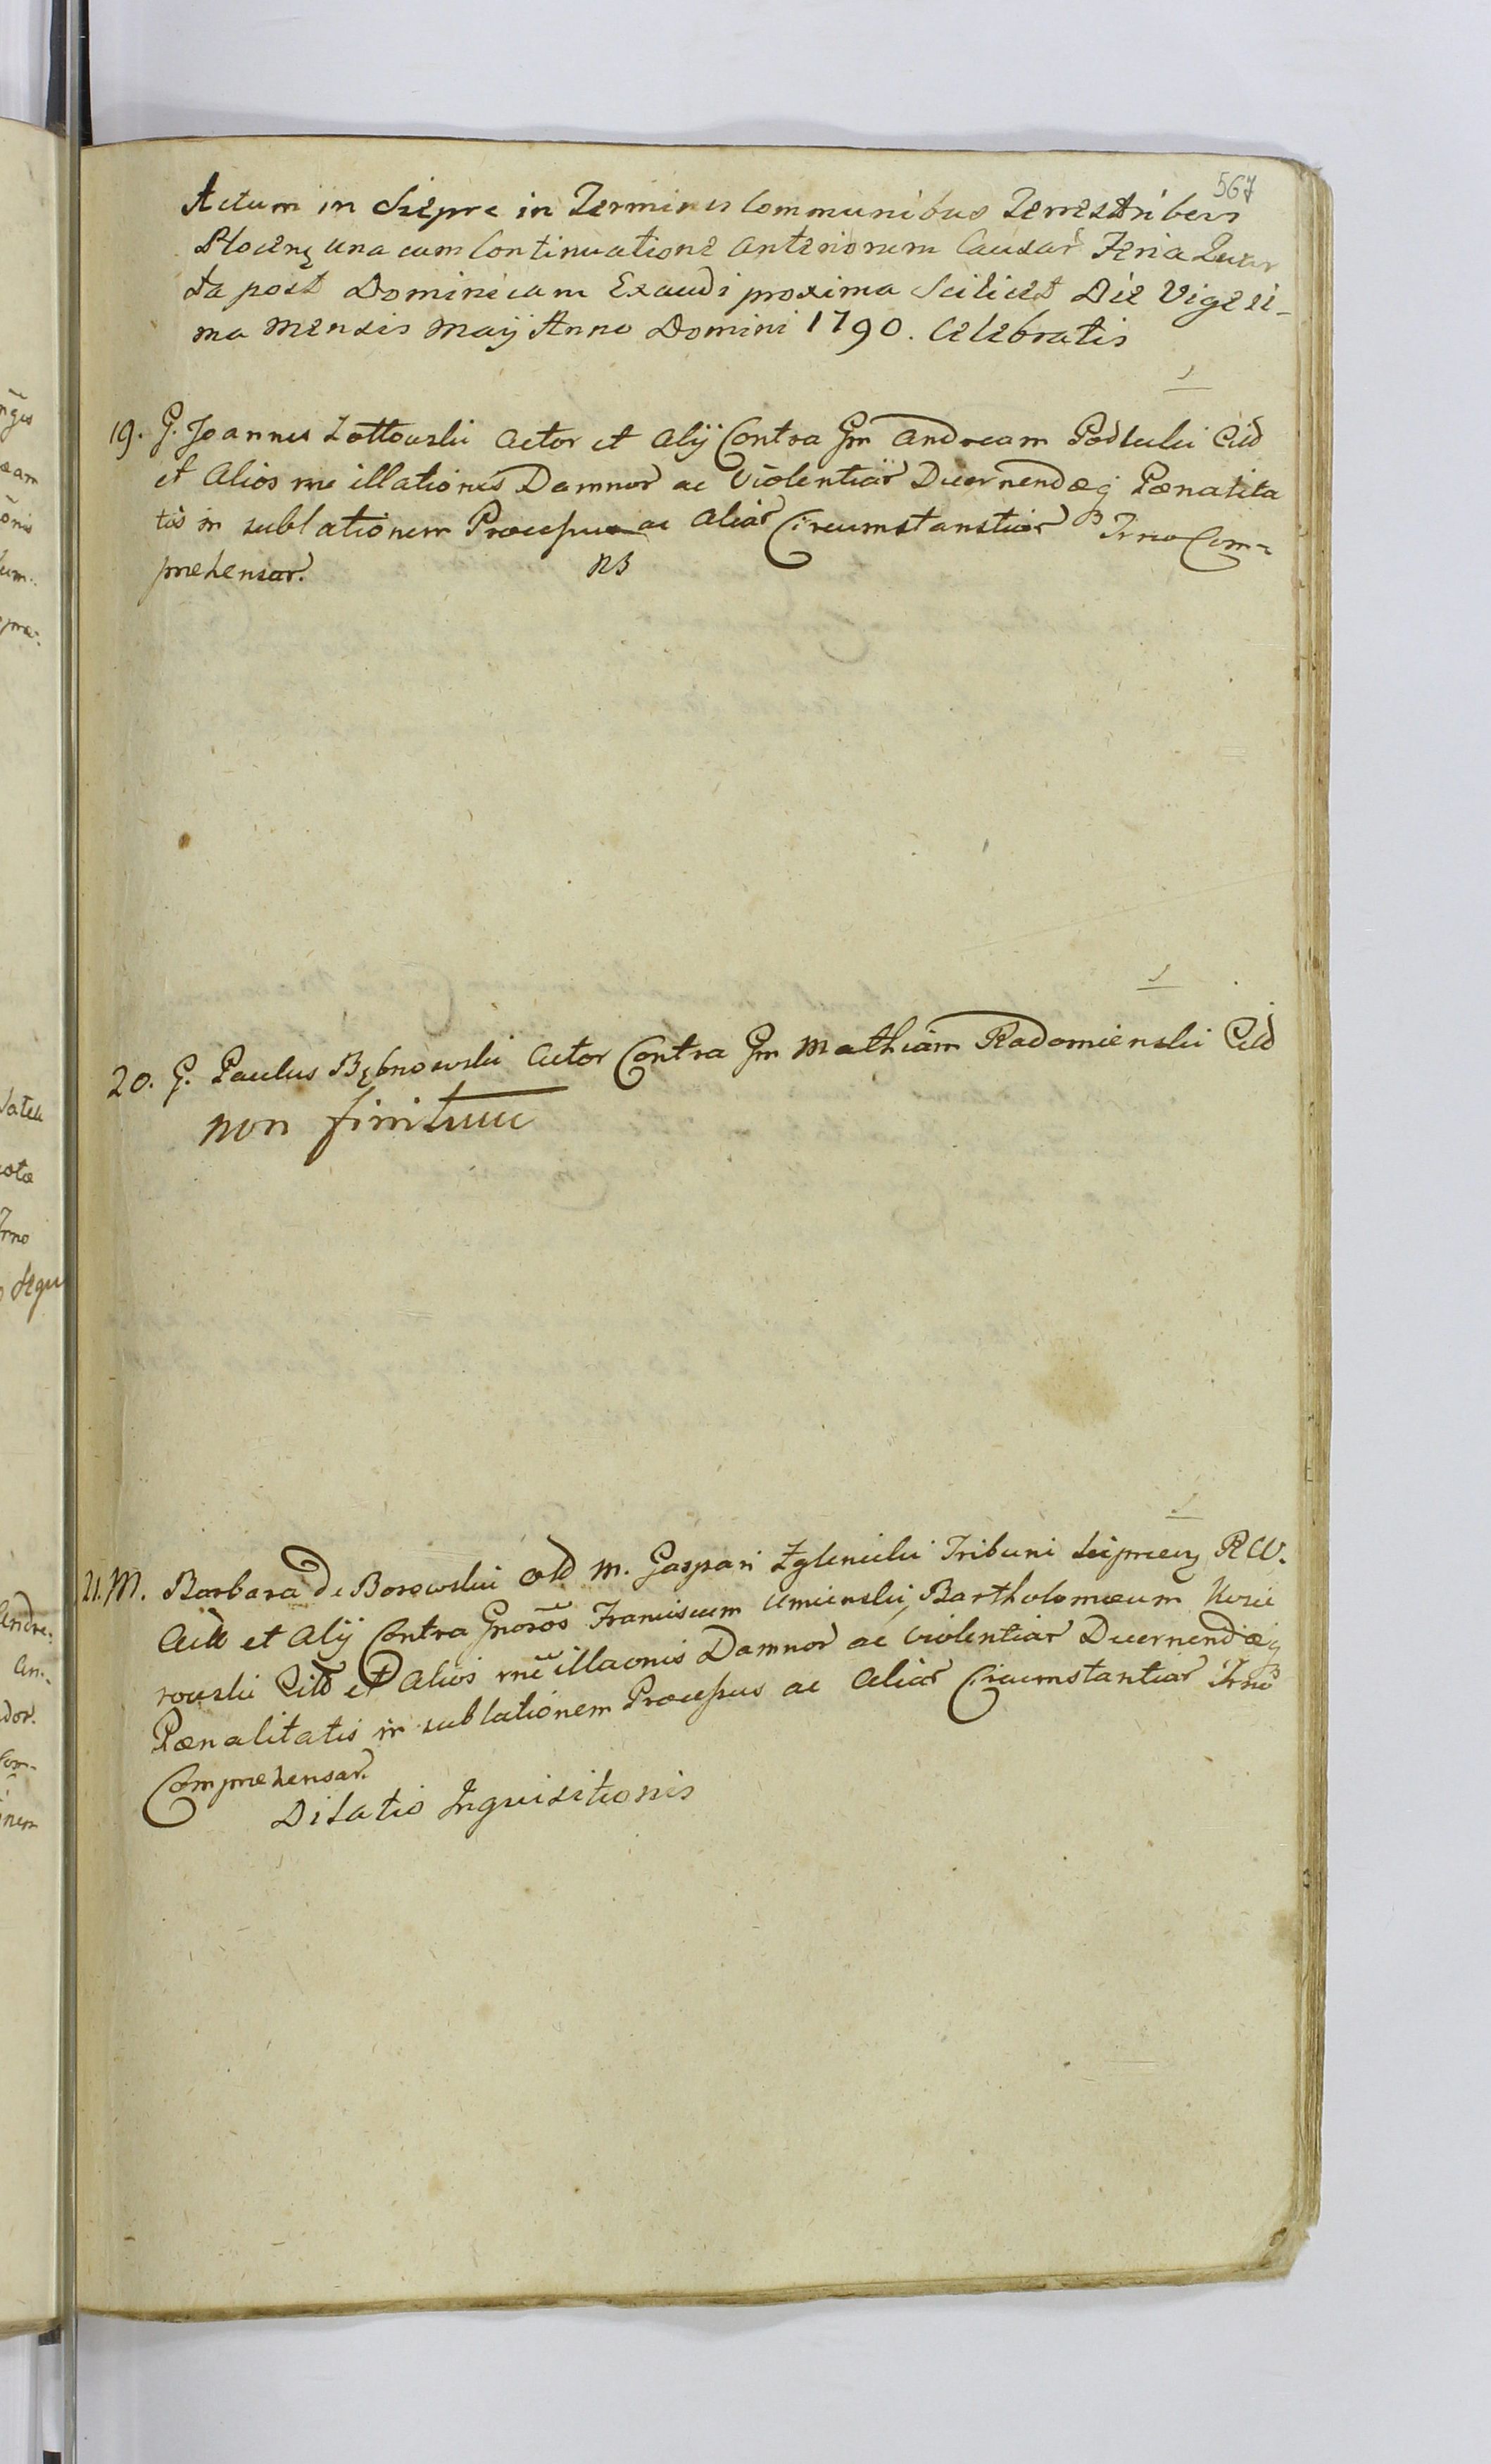 567
Actum in Sieprc in Terminis Communibus Terrestribus
Plocens una cum Continuatione Anteriorum Causar Feria Quar
ta post Dominicam Exaudi proxima Scilicet Die Vigesi-
ma Mensis Maij Anno Domini 1790. Celebratis
19. G. Joannes Zottowski Actor et Alij Contra Gm Andream Podlecki Citd
et Alios rne illationis Damnor ac Violentiar Decernendæq Pœnalita
tis in sublationem Processus ac Aliar Circumstanstiar Trno Com-
prehensar. NB
20. G. Paulus Bębnowski Actor Contra Gm Mathiam Radomienski Citd
non finitum
21. M. Barbara de Borowskie M. Gaspari Zglenicki Tribuni Sieprcen RW.
et Alij Contra Gnosos Franciscum Umienski, Bartholomæum
rowski Citd et Alios rne illaonis Damnor ac Violentiar Decernendæq
Pœnalitatis in sublationem Processus ac Aliar Circumstantiar Trno
Comprehensar.
Dilatio Inquisitionis